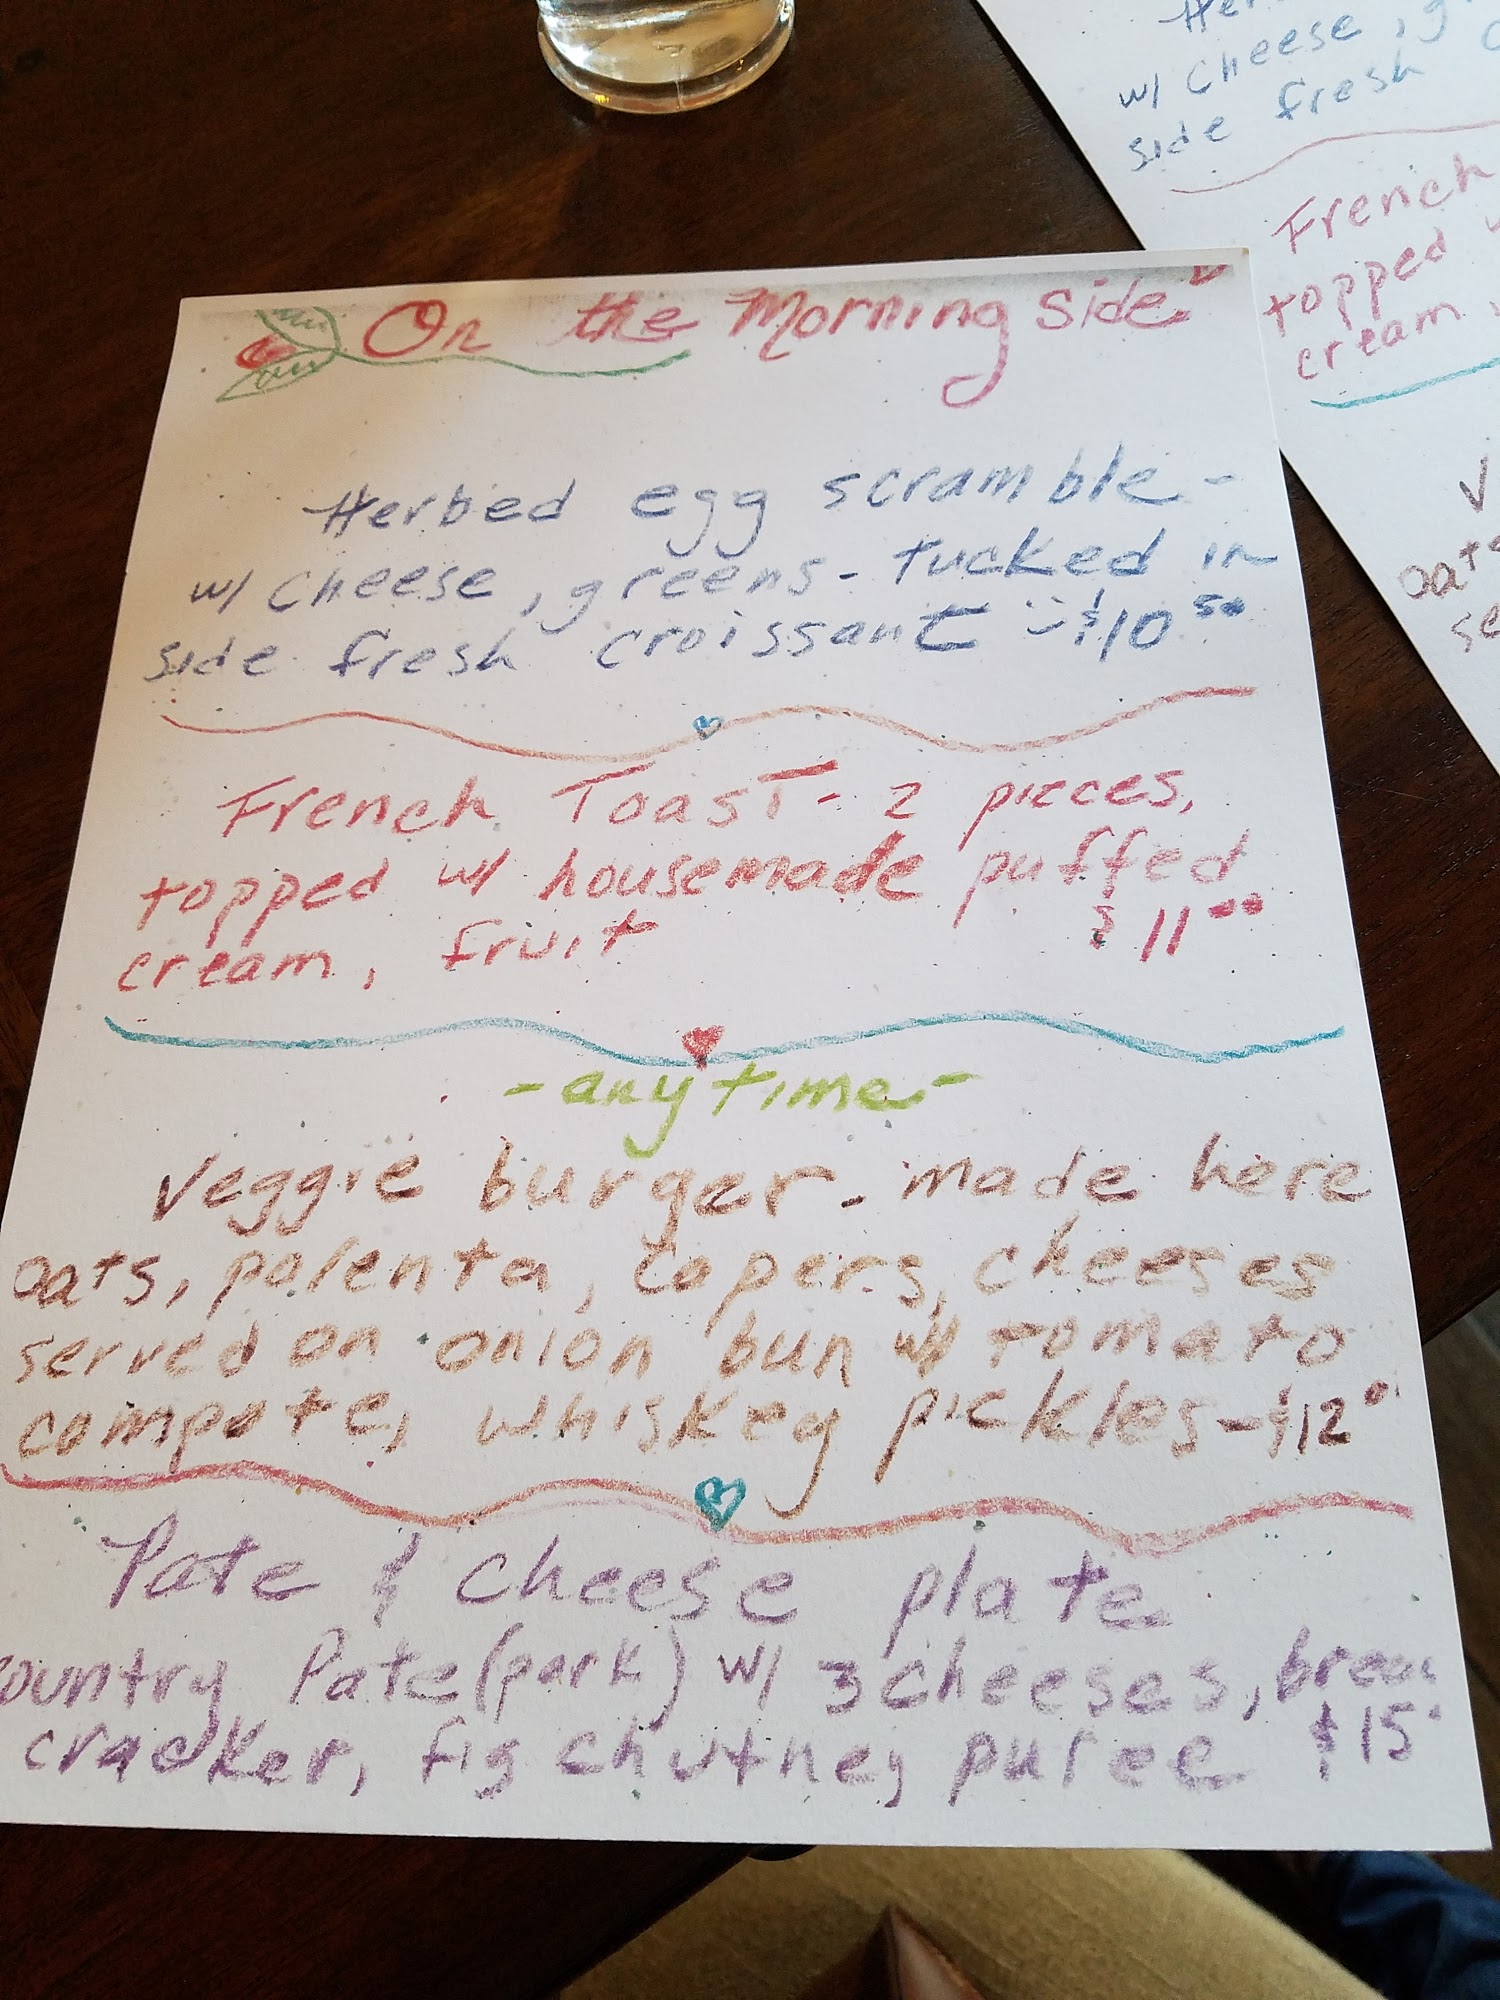 On the Morning Side
Herbed egg scramble -
w/ cheese, greens - tucked in
side fresh croissant $10.50
French Toast - 2 pieces,
topped w/ housemade puffed
cream, fruit $11.00
- anytime -
Veggie burger - made here
oats, polenta, capers, cheeses
served on onion bun w/ tomato
compote, whiskey pickles - $12
Pate & cheese plate
country Pate (pork) w/ 3 cheeses,
cracker, fig chutney puree $15
w/ cheese, g
side fresh
French
topped
cream,